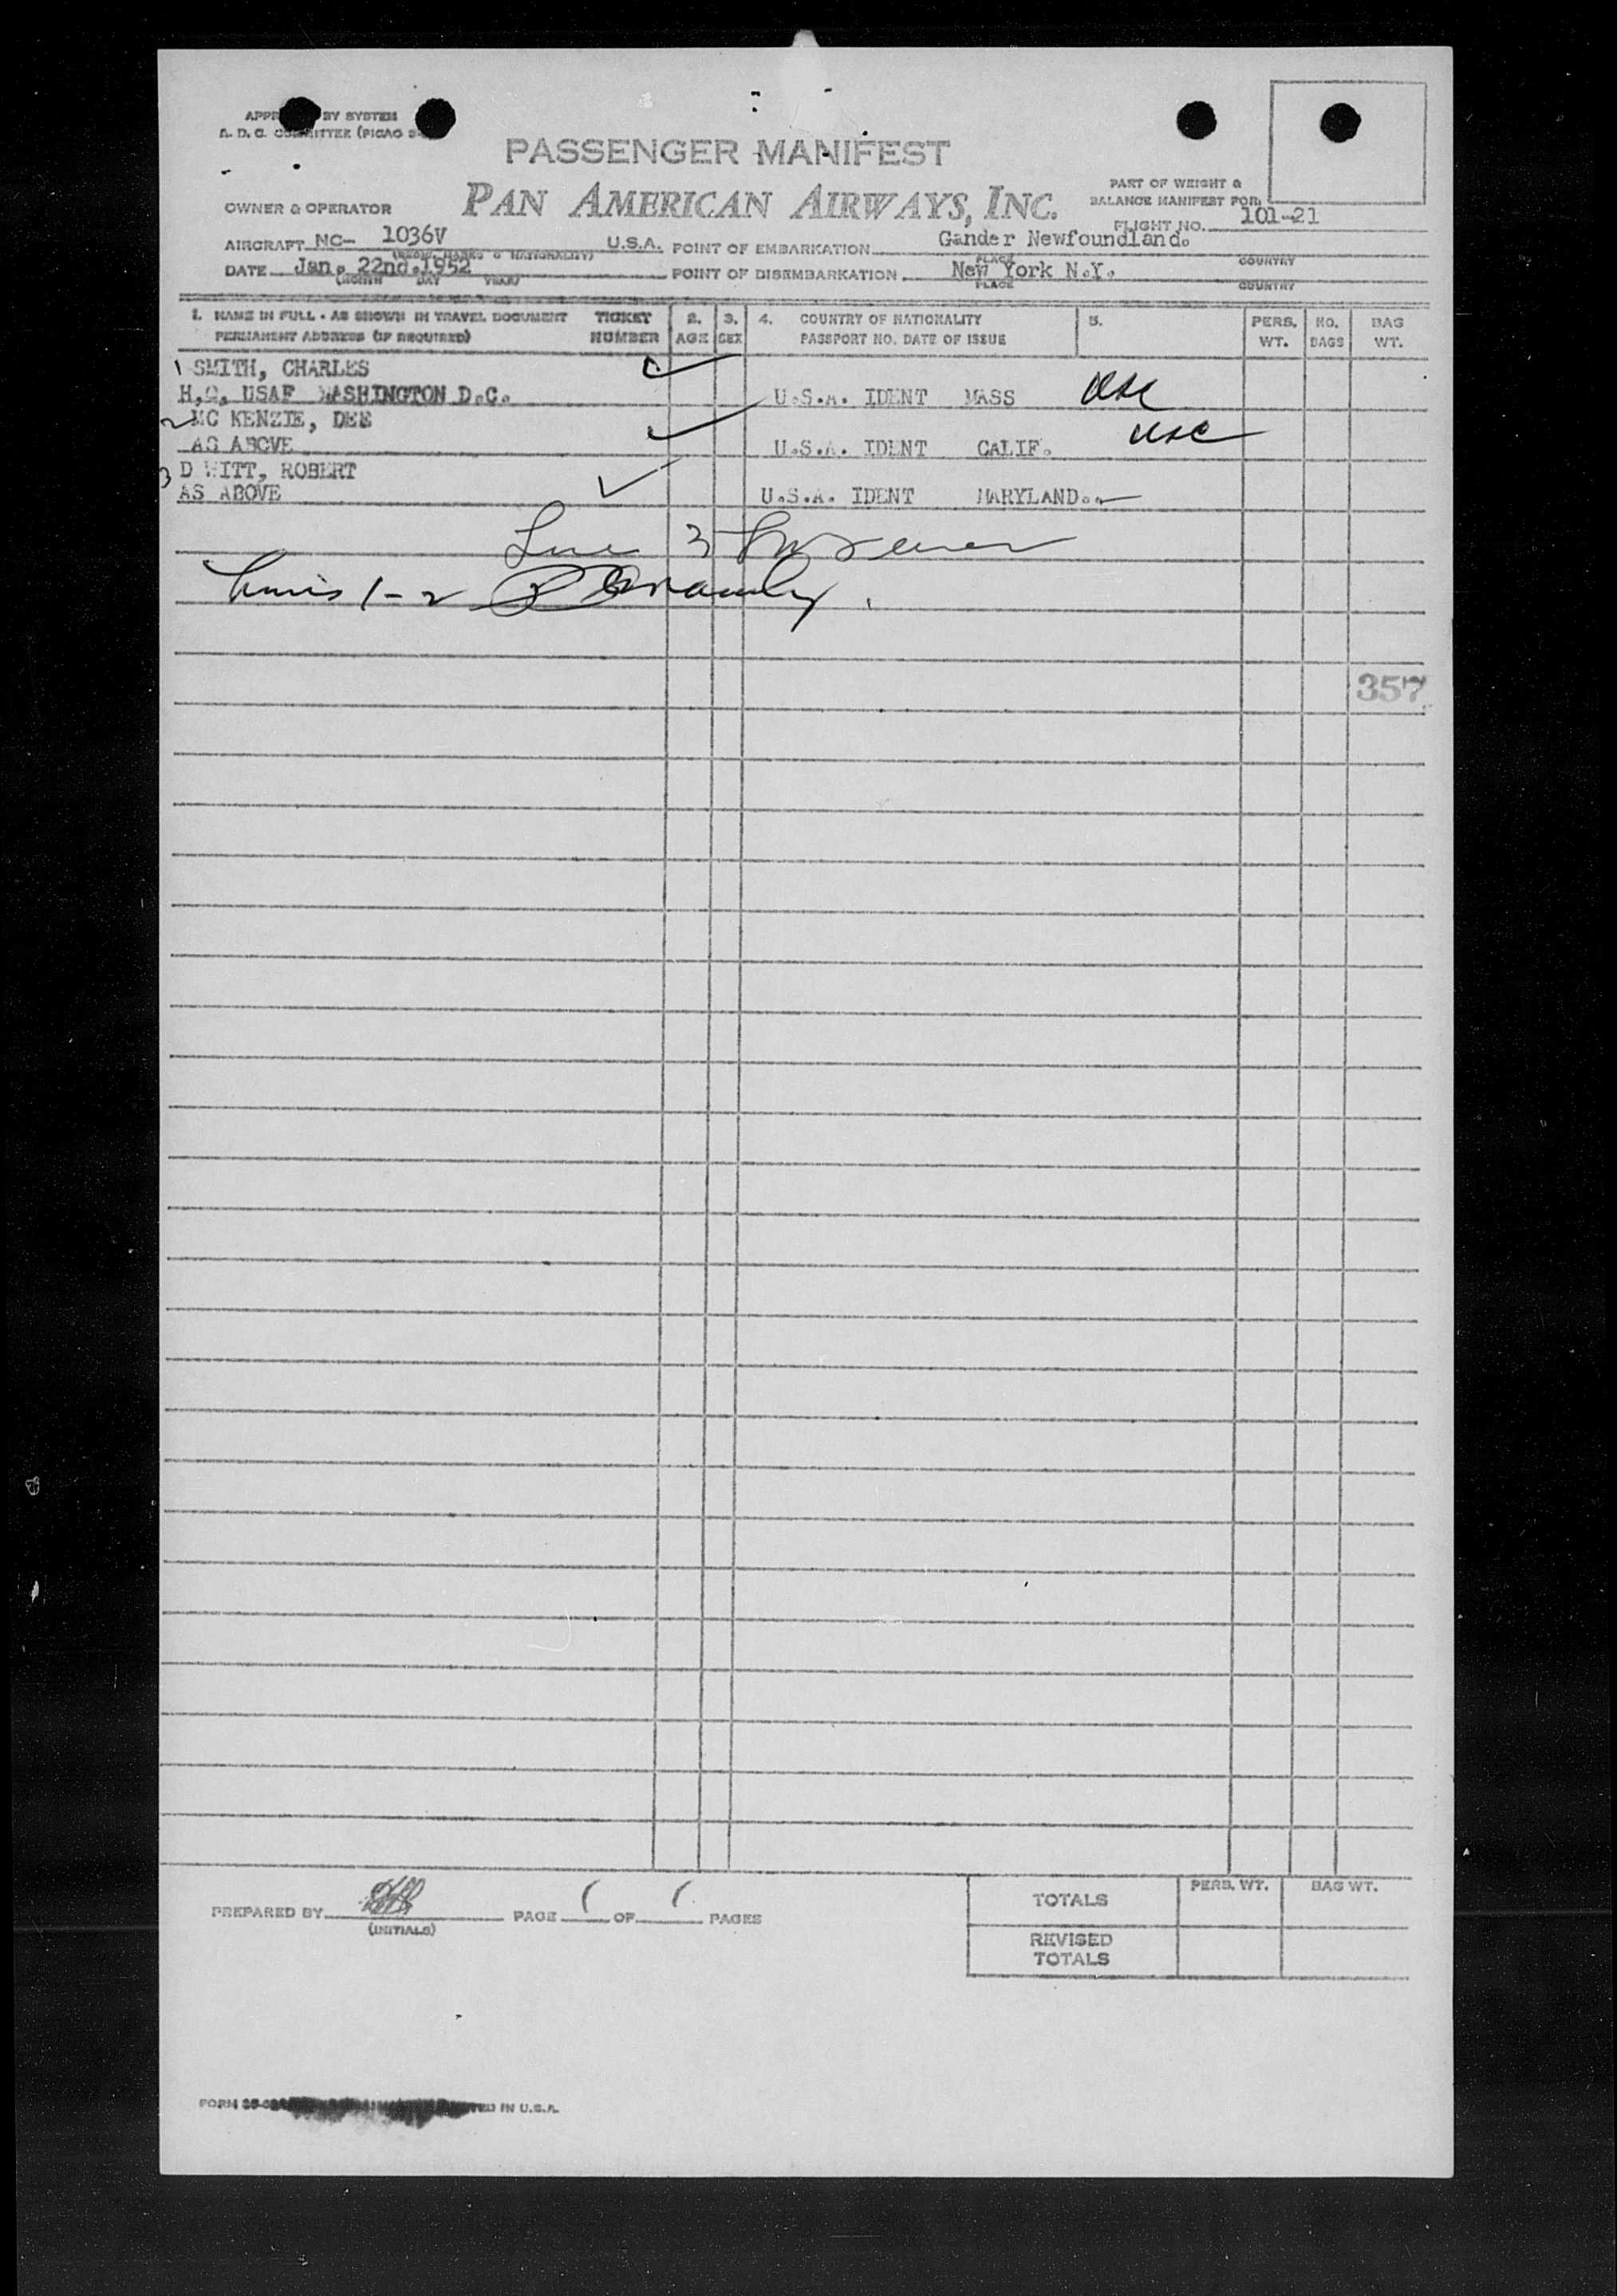 BY SYSTEM
A. D. C. COMMITTEE (PICAO
PASSENGER MANIFEST
PAN AMERICAN AIRWAYS, INC.
PART OF WEIGHT &
BALANCE MANIFEST FOR:
OWNER & OPERATOR
FLIGHT NO. 101-21
AIRCRAFT NC- 1036V U.S.A. POINT OF EMBARKATION Gander Newfoundland.
(REGIS. MARKS & NATIONALITY) PLACE COUNTRY
DATE Jan. 22nd.1952 POINT OF DISEMBARKATION New York N.Y.
(MONTH DAY YEAR) PLACE COUNTRY
1. NAME IN FULL - AS SHOWN IN TRAVEL DOCUMENT TICKET 2. 3. 4. COUNTRY OF NATIONALITY 5. PERS. NO. BAG
PERMANENT ADDRESS (IF REQUIRED) NUMBER AGE SEX PASSPORT NO. DATE OF ISSUE WT. BAGS WT.
1 SMITH, CHARLES
H.Q. USAF WASHINGTON D.C. U.S.A. IDENT MASS USC
2 MC KENZIE, DEE
AS ABOVE U.S.A. IDENT CALIF. USC
3 D WITT, ROBERT
AS ABOVE U.S.A. IDENT MARYLAND.
Line 3
1-2
357
PREPARED BY PAGE 1 OF 1 PAGES
(INITIALS)
PERS. WT. BAG WT.
TOTALS
REVISED
TOTALS
FORM IN U.S.A.